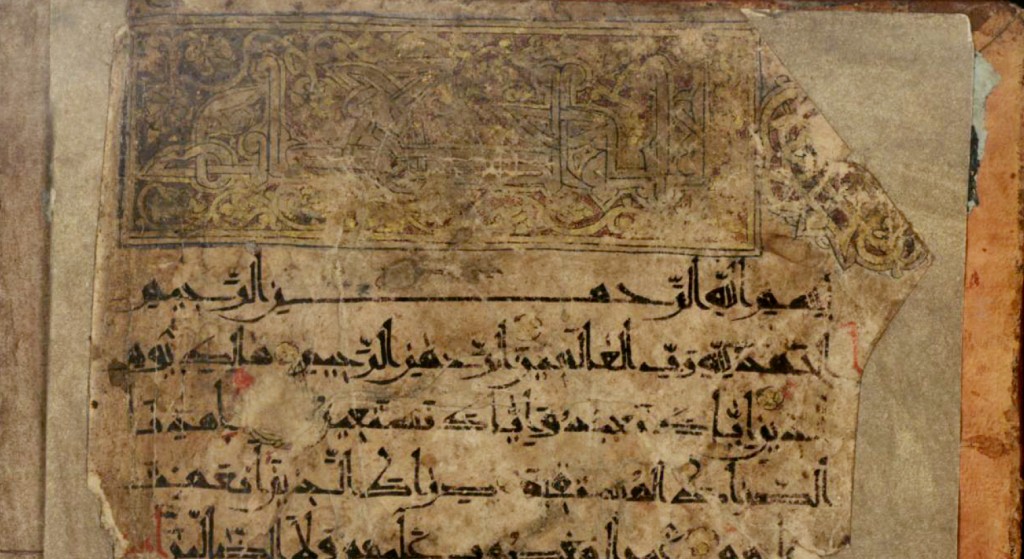 بسم الله الرحمن الرحيم
الحمد لله رب العالمين الرحمن الرحيم مالك يوم
الدين اياك نعبد واياك نستعين اهدنا
الصراط المستقيم صراط الذين انعمت
عليهم غير المغضوب عليهم ولا الضالين